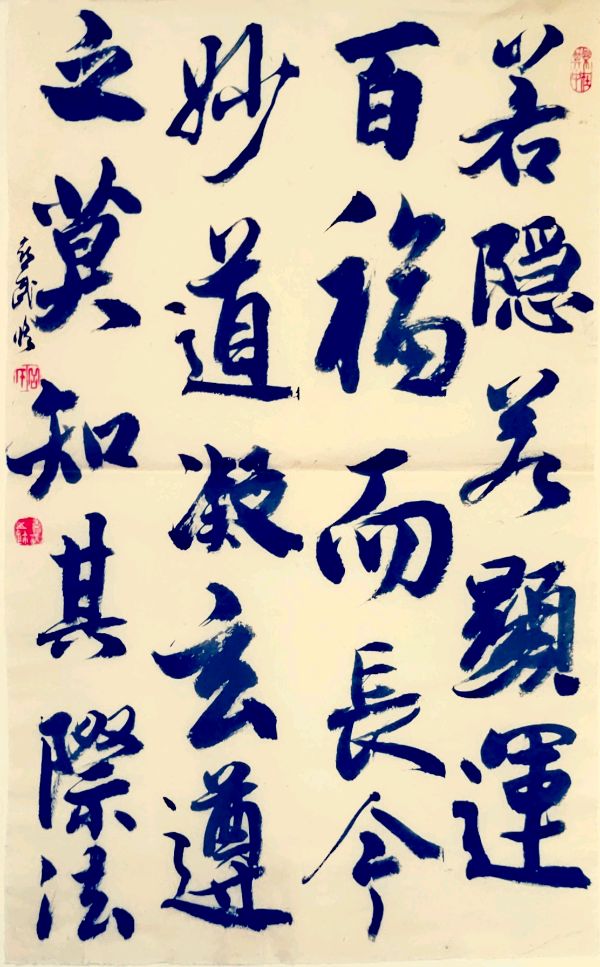 若隐若顯運
百福而長今
妙道凝玄遵
之莫知其際法